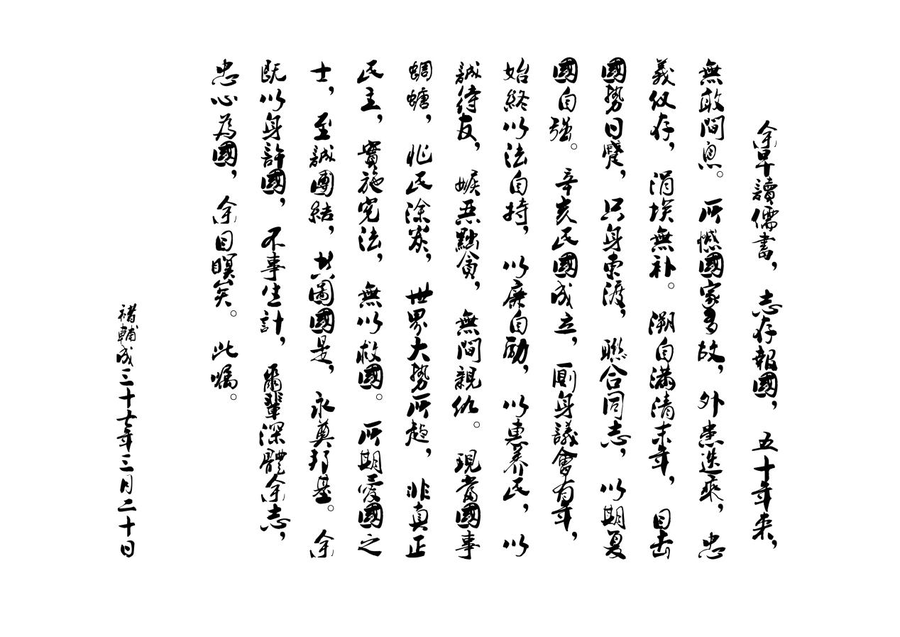 余早讀儒書，志存報國，五十年來，
無敢間息。所憾國家多故，外患迭乘，忠
義仅存，涓埃無补。溯自滿清末年，目击
國勢日蹙，只身東渡，聯合同志，以期夏
國自強。辛亥民國成立，厠身議會有年，
始終以法自持，以廉自勵，以惠養民，以
誠待友，嫉恶黜貪，無間親仇。現當國事
蜩螗，兆民涂炭，世界大勢所趋，非真正
民主，實施宪法，無以救國。所期愛國之
士，至誠團結，共圖國是，永奠邦基。余
既以身許國，不事生計，爾輩深體余志，
忠心為國，余目瞑矣。此嘱。
褚輔成三十七年三月二十日